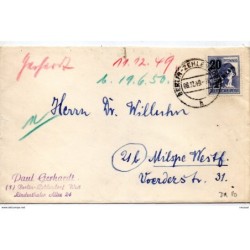 Gerhardt 11.12.49
b. 19.6.50.
BERLIN-ZEHLE
06.12.49
b
20
Herrn Dr. Willeshin
21b Milspe Westf.
Voerder str. 31.
Paul Gerhardt
(1) Berlin-Zehlendorf West
Lindenthaler Allee 24